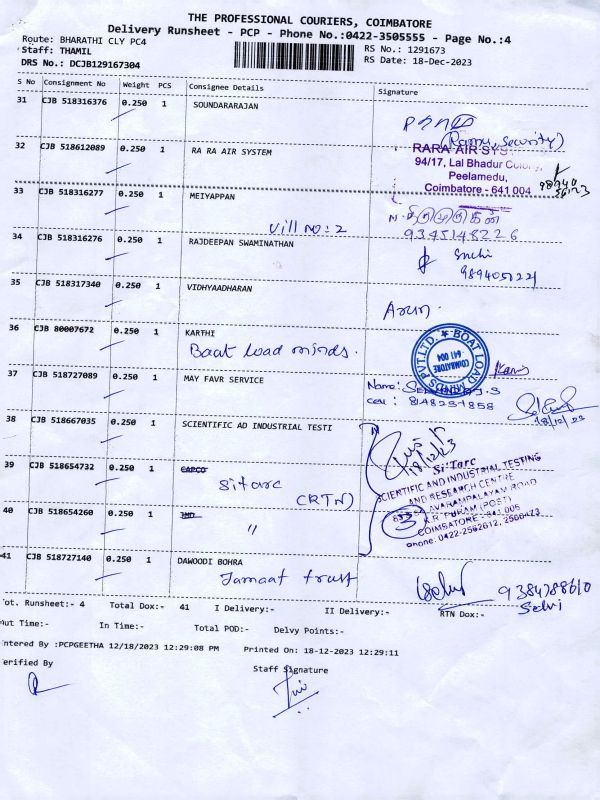 THE PROFESSIONAL COURIERS, COIMBATORE
Delivery Runsheet - PCP - Phone No.:0422-3505555 - Page No.:4
Route: BHARATHI CLY PC4
RS No.: 1291673
Staff: THAMIL
RS Date: 18-Dec-2023
DRS No.: DCJB129167304
S No Consignment No Weight PCS Consignee Details Signature
31 CJB 518316376 0.250 1 SOUNDARARAJAN
(Ramu, Security)
32 CJB 518612089 0.250 1 RA RA AIR SYSTEM
RARA AIR SYS
94/17, Lal Bhadur Colony,
Peelamedu,
Coimbatore - 641 004
33 CJB 518316277 0.250 1 MEIYAPPAN
Vill no: 2
9345148226
34 CJB 518316276 0.250 1 RAJDEEPAN SWAMINATHAN
Suchi
35 CJB 518317340 0.250 1 VIDHYAADHARAN
Arun
36 CJB 80007672 0.250 1 KARTHI
Baat load minds.
BOAT LOAD MINDS PVT.LTD.
COIMBATORE
641 004
37 CJB 518727089 0.250 1 MAY FAVR SERVICE
Name:
Cell:
18/12/23
38 CJB 518667035 0.250 1 SCIENTIFIC AD INDUSTRIAL TESTI
18/12/23
39 CJB 518654732 0.250 1 CAPCO
Sitarc
(RTN)
Si'Tarc
SCIENTIFIC AND INDUSTRIAL TESTING
AND RESEARCH CENTRE
AVARAMPALAYAM ROAD
K.R. PURAM (POST)
COIMBATORE - 641 006
Phone: 0422-2562612, 2560473
3
40 CJB 518654260 0.250 1
"
41 CJB 518727140 0.250 1 DAWOODI BOHRA
Jamaat trust
9384788610
Selvi
ot. Runsheet:- 4 Total Dox:- 41 I Delivery:- II Delivery:- RTN Dox:-
ut Time:- In Time:- Total POD:- Delvy Points:-
ntered By :PCPGEETHA 12/18/2023 12:29:08 PM Printed On: 18-12-2023 12:29:11
erified By Staff Signature